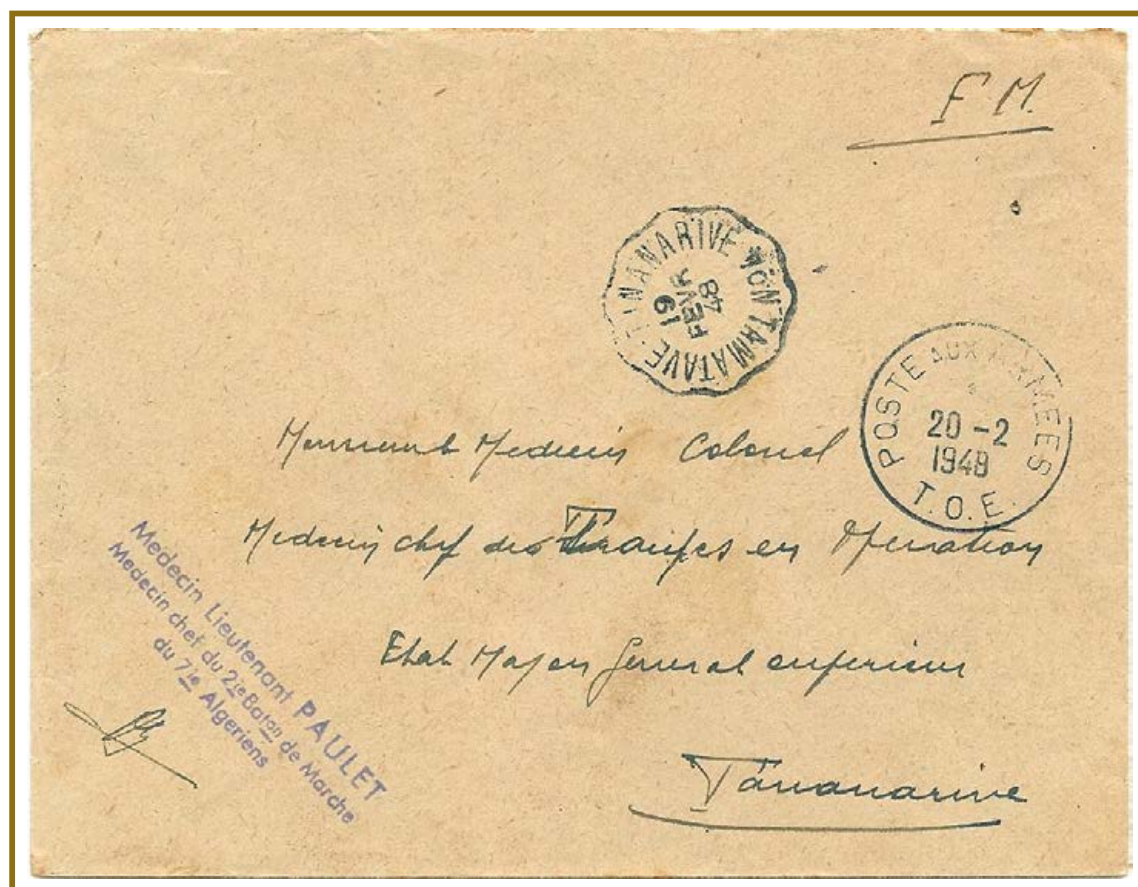 F M.
TANANARIVE
TAMATAVE
19
FEVR
48
POSTE AUX ARMEES
20 - 2
1948
T.O.E.
Medecin Colonel
Medecin chef des Troupes en Operation
Etat Major General superieur
Tananarive
Medecin Lieutenant PAULET
Medecin chef du 2ie Baton de Marche
du 7ie Algeriens